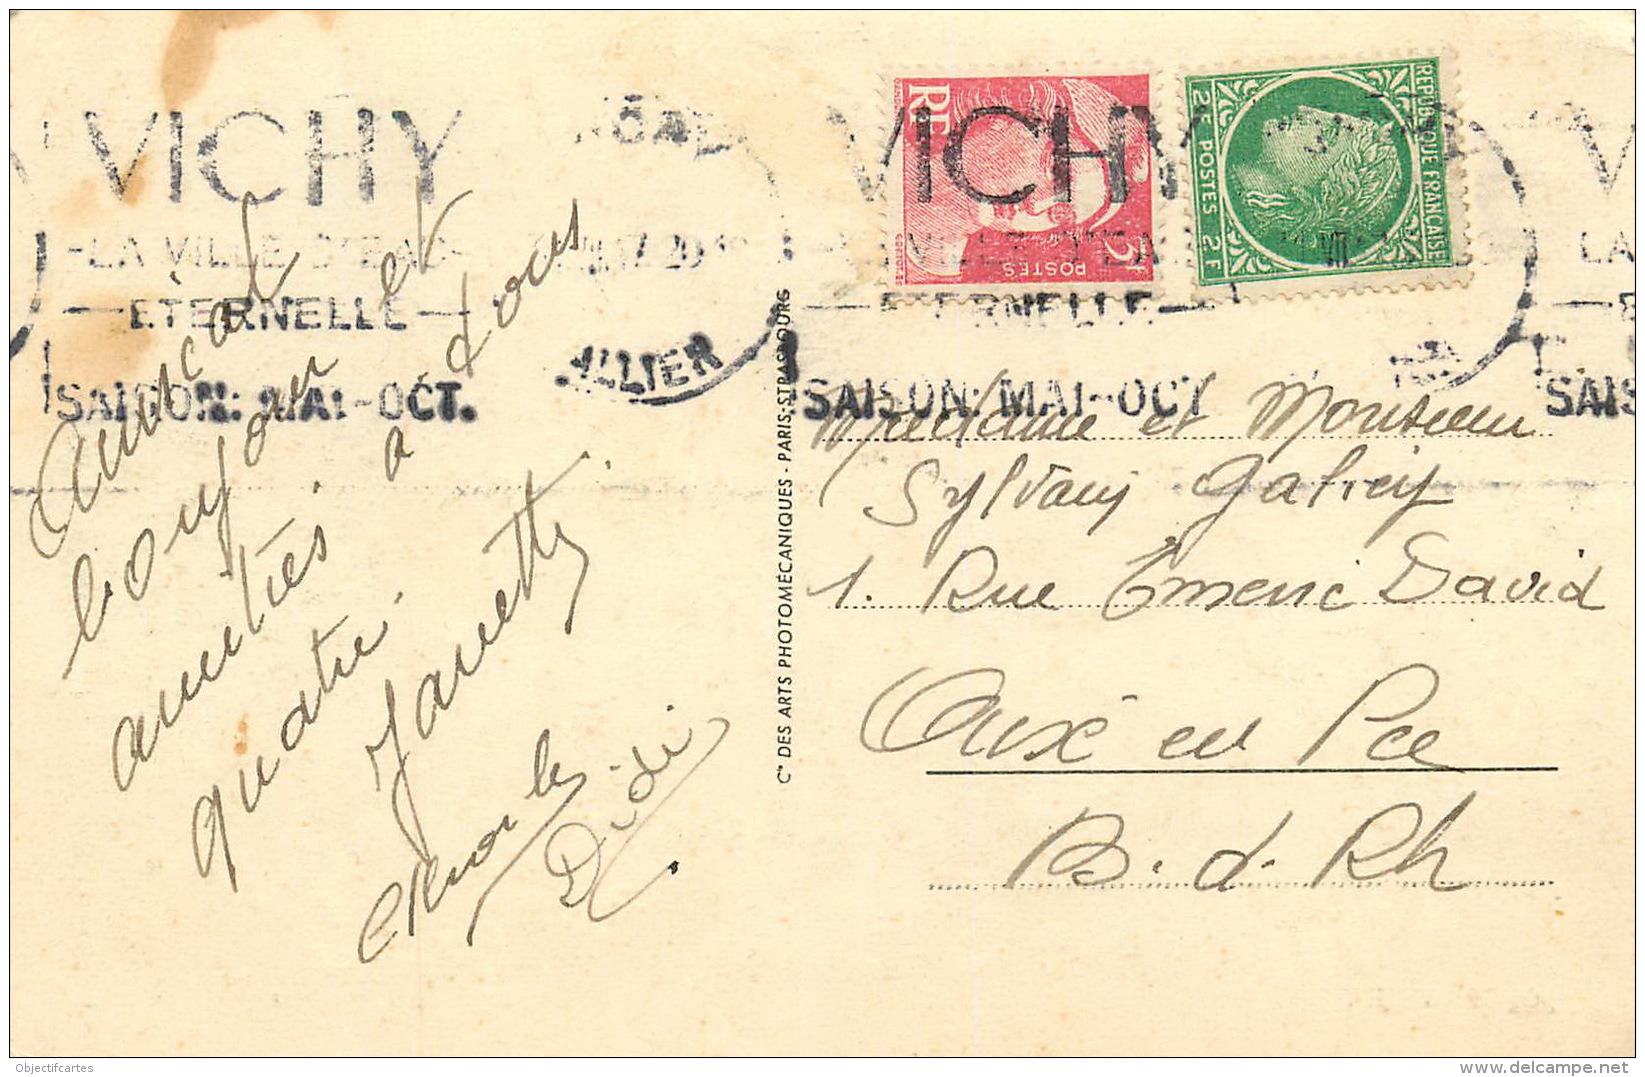 VICHY
-LA VILLE D'EAU-
-ETERNELLE-
SAISON: MAI-OCT.
ALLIER
Amical
bonjour et
amitiés à vous
quatre.
Janette
Charles
Didi.
Cie DES ARTS PHOTOMÉCANIQUES - PARIS-STRASBOURG
RF
POSTES
3f
REPUBLIQUE FRANÇAISE
2F POSTES 2F
VICHY
VILLE D'EA
ETERNELLE
SAISON: MAI-OCT
Madame et Monsieur
Sylvain
1. Rue Émeric David
Aix en Pce
B. d. Rh
V
LA
SAIS
Objectifcartes
www.delcampe.net